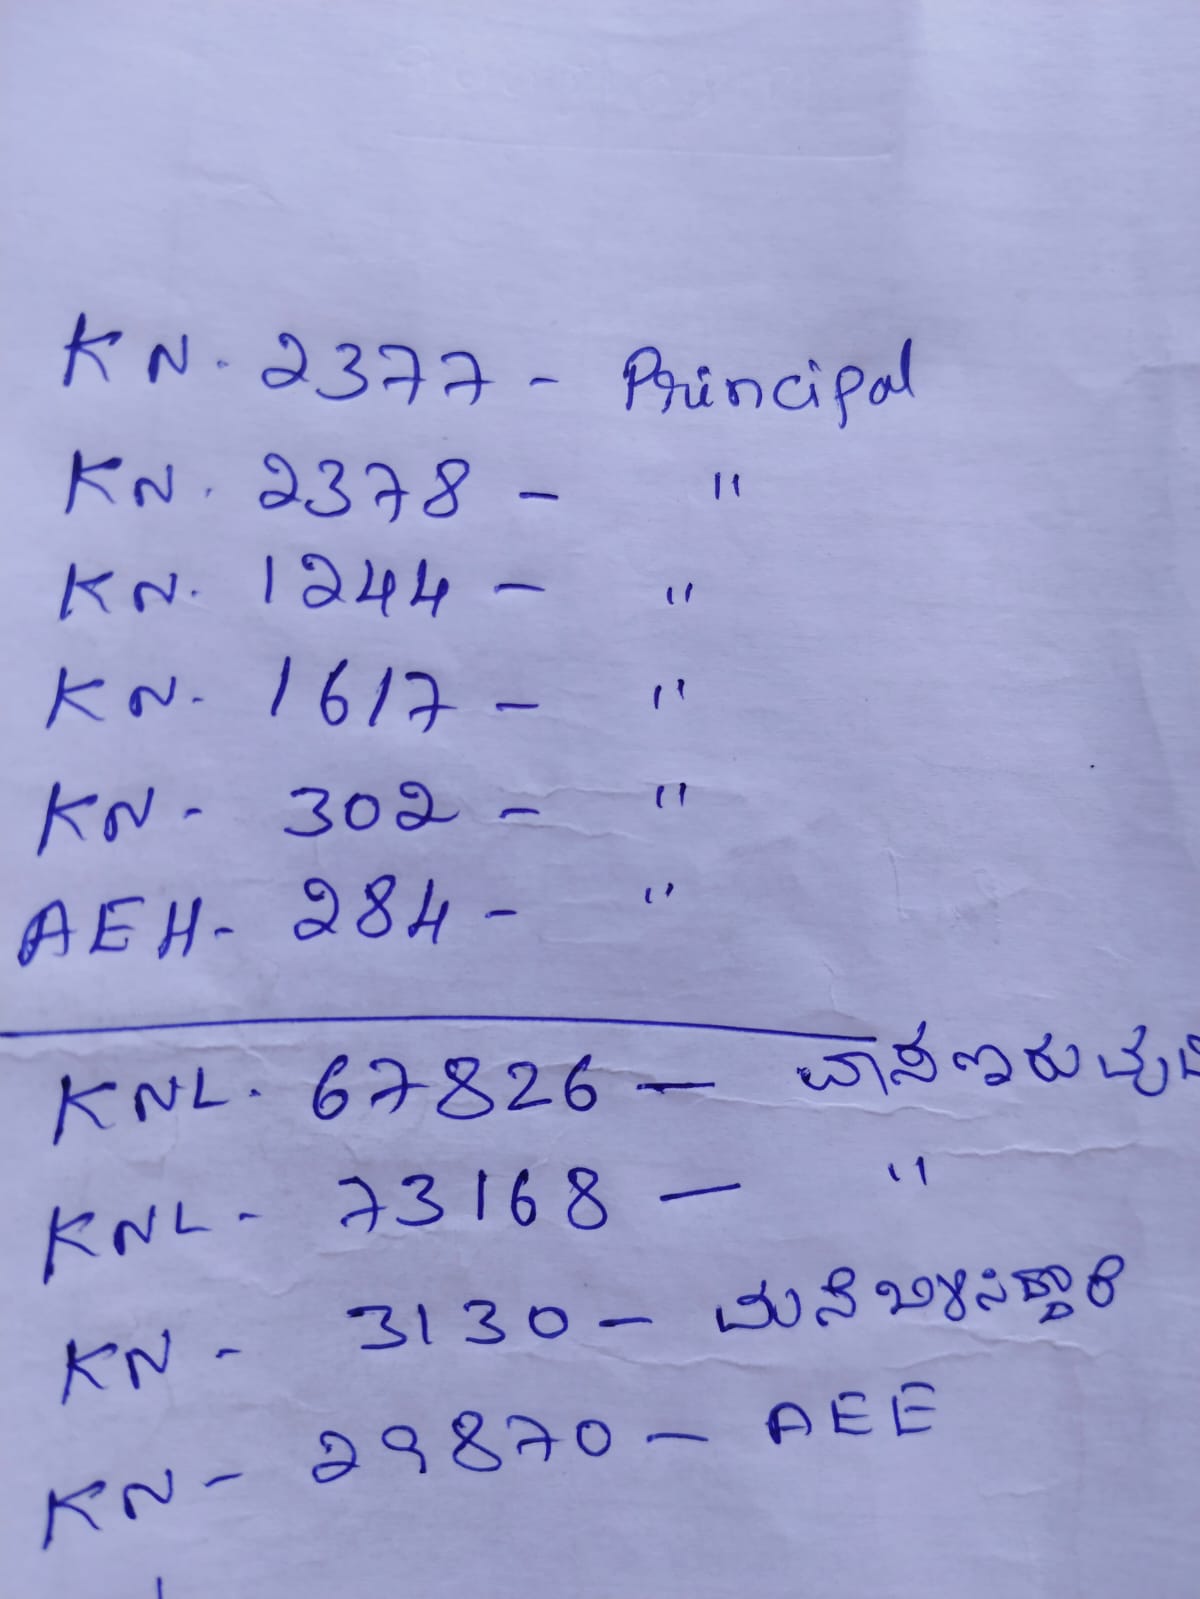 KN. 2377 - Principal
KN. 2378 - "
KN. 1244 - "
KN. 1617 - "
KN - 302 - "
AEH - 284 - "
KNL. 67826 -
KNL - 73168 - "
KN - 3130 - ಮನೆ
KN - 29870 - AEE